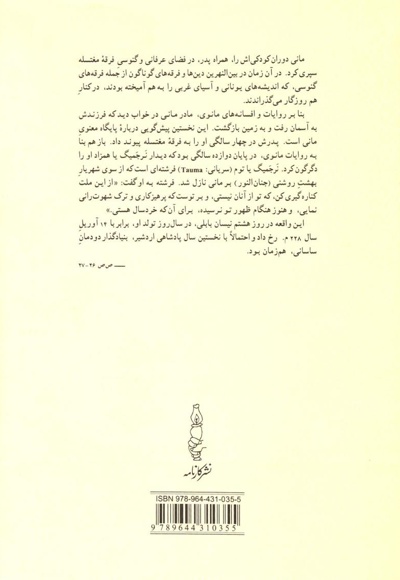 مانی دوران کودکی‌اش را، همراه پدر، در فضای عرفانی و گنوسی فرقهٔ مغتسله
سپری کرد. در آن زمان در بین‌النهرین دین‌ها و فرقه‌های گوناگون از جمله فرقه‌های
گنوسی، که اندیشه‌های یونانی و آسیای غربی را به هم آمیخته بودند، در کنار
هم روزگار می‌گذراندند.
بنا بر روایات و افسانه‌های مانوی، مادر مانی در خواب دید که فرزندش
به آسمان رفت و به زمین بازگشت. این نخستین پیش‌گویی دربارهٔ پایگاه معنوی
مانی است. پدرش در چهار سالگی او را به فرقهٔ مغتسله پیوند داد. باز هم بنا
به روایات مانوی، در پایان دوازده سالگی بود که دیدار نَرجَمیگ یا همزاد او را
دگرگون کرد. نَرجَمیگ یا توم (سریانی: Tauma) فرشته‌ای که از سوی شهریار
بهشتِ روشنی (جنان‌النور) بر مانی نازل شد. فرشته به او گفت: «از این ملت
کناره‌گیری کن، که تو از آنان نیستی، و بر توست که پرهیزکاری و ترک شهوت‌رانی
نمایی، و هنوز هنگام ظهور تو نرسیده، برای آن‌که خردسال هستی.»
این واقعه در روز هشتم نیسان بابلی، در سال‌روز تولد او، برابر با ۱۴ آوریلِ
سال ۲۲۸ م. رخ داد و احتمالاً با نخستین سال پادشاهی اردشیر، بنیادگذار دودمان
ساسانی، هم‌زمان بود.
— صص ۲۶-۲۷
نشر کارنامه
ISBN 978-964-431-035-5
9 789644 310355